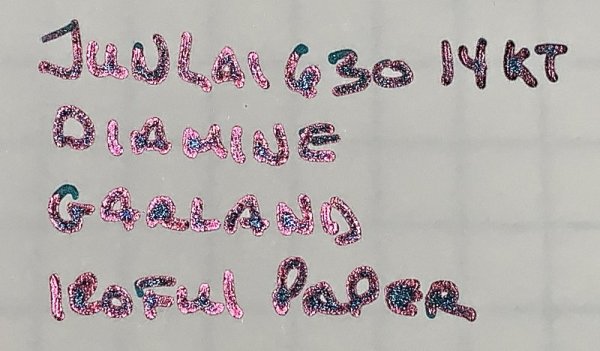 JUNLAI 630 14KT
DIAMINE
GARLAND
IROFUL PAPER